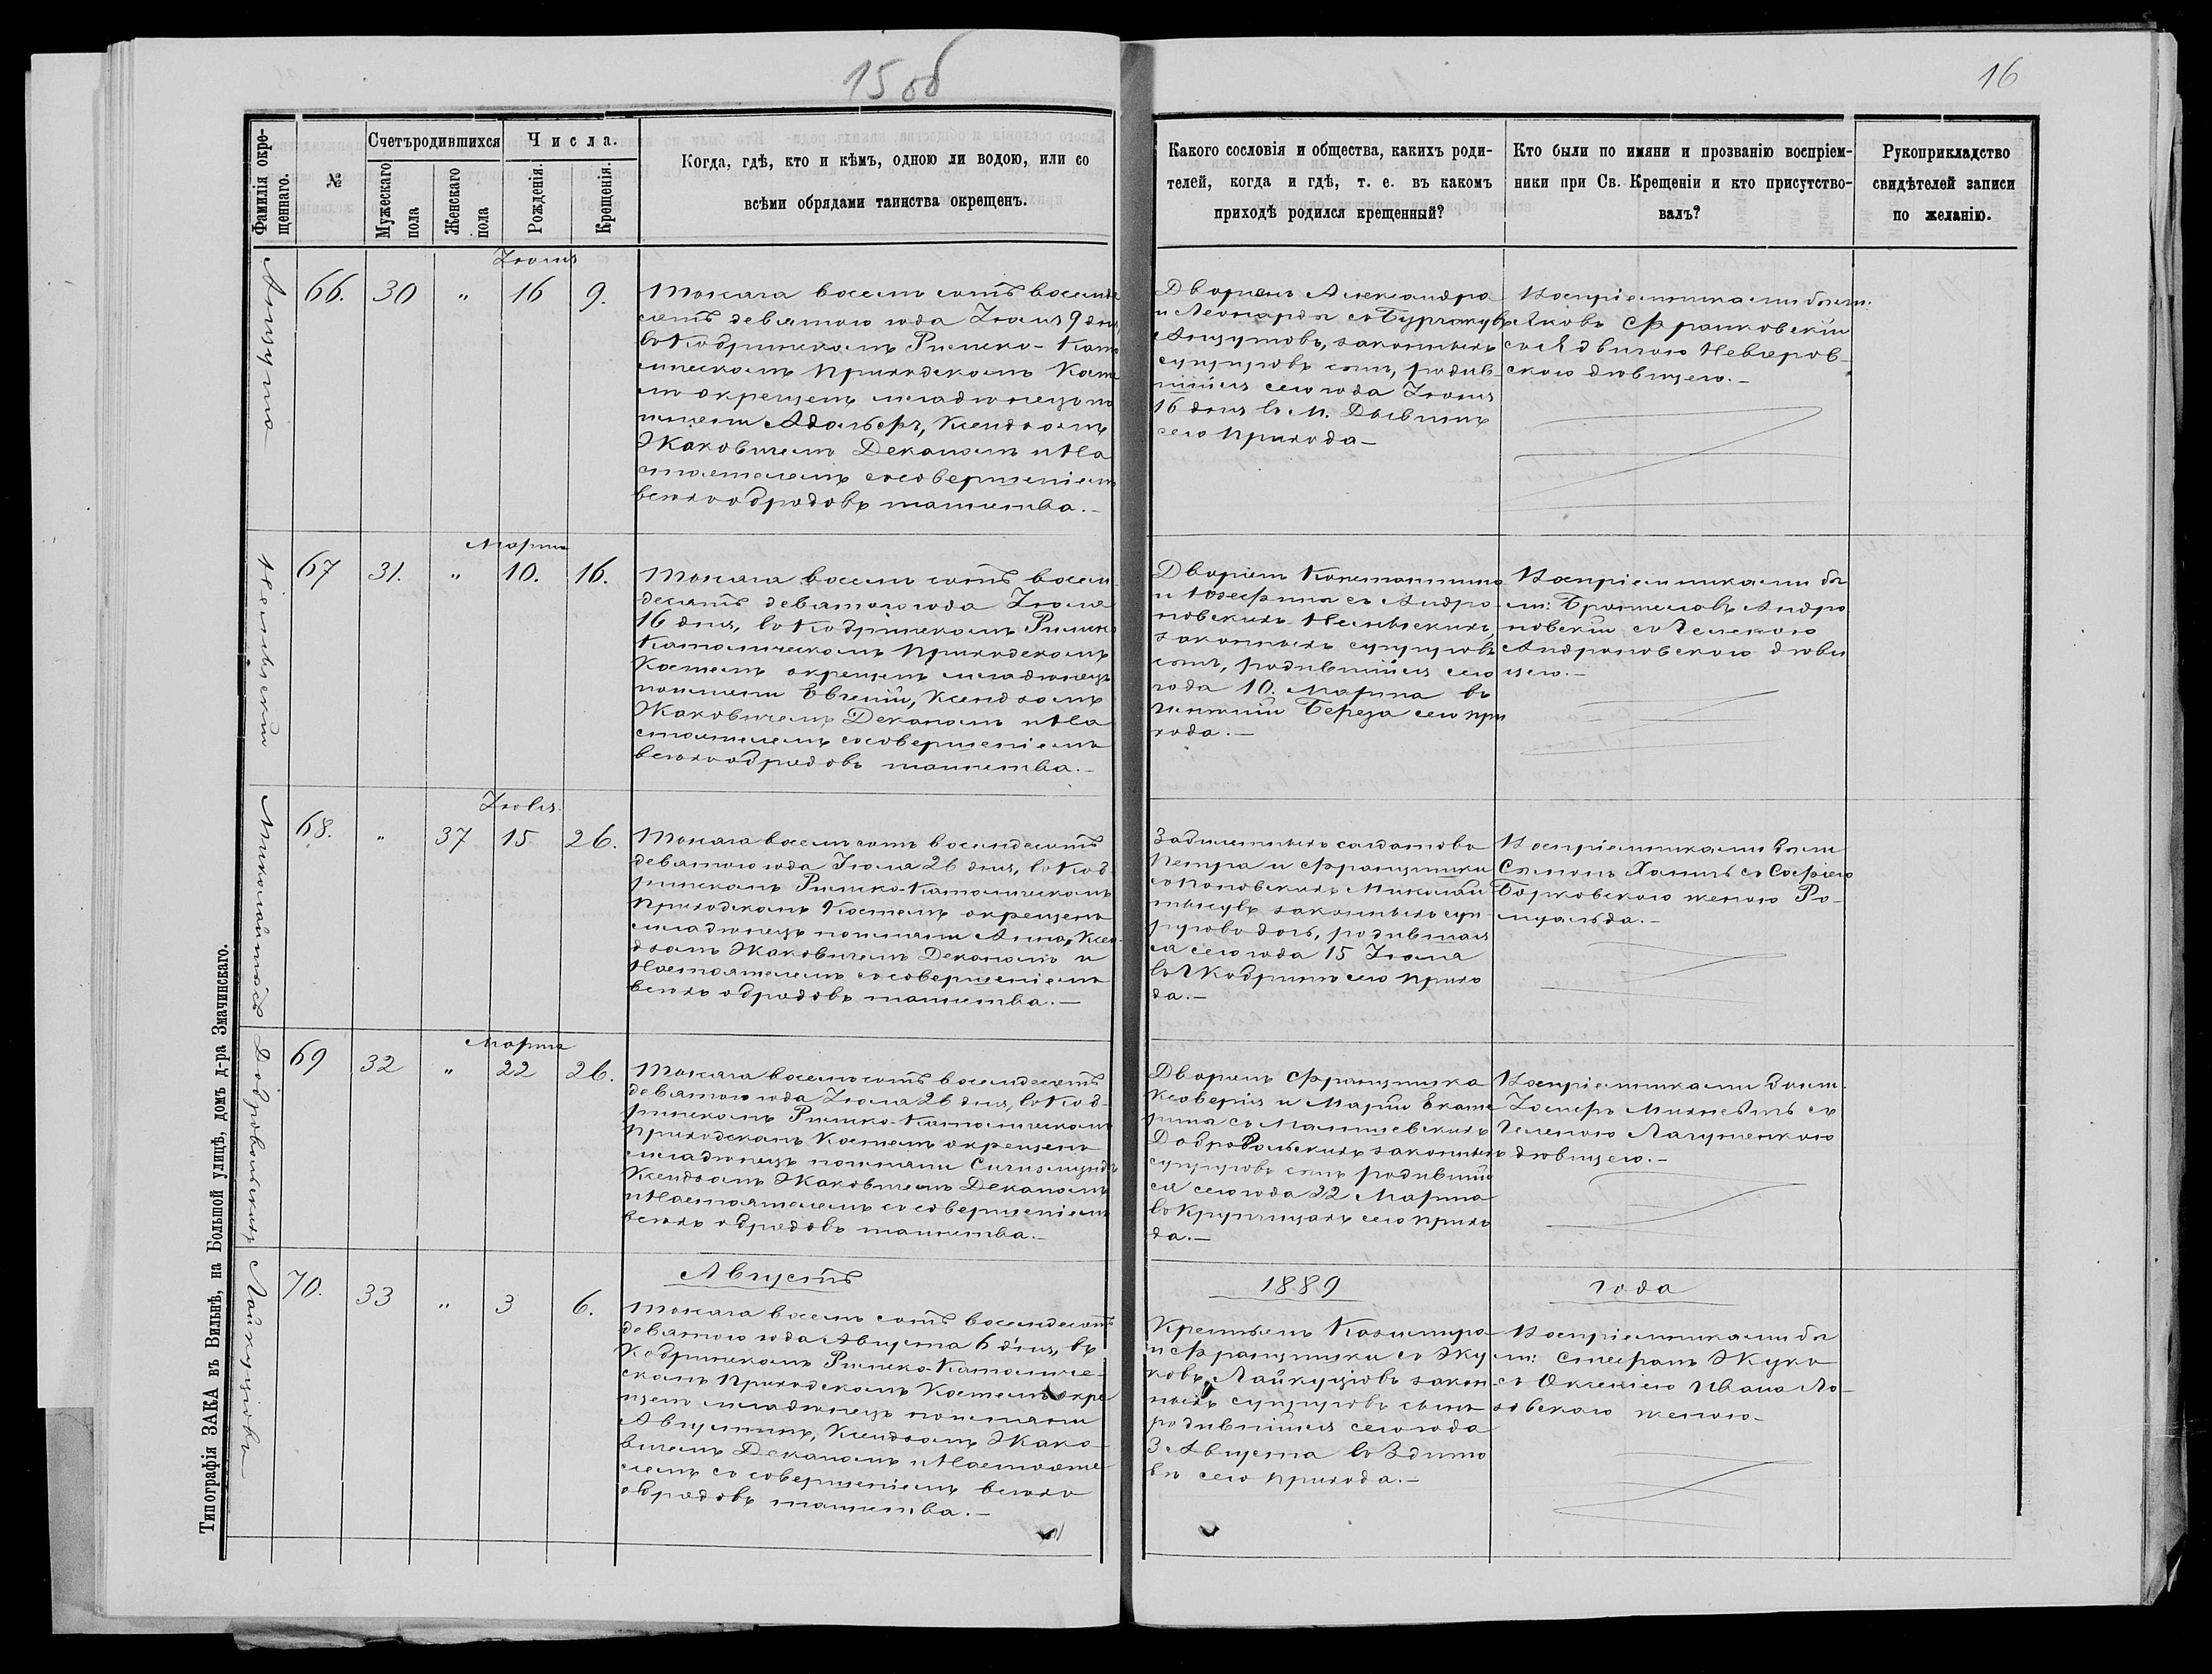 15 об
16
Фамилія окре-
щеннаго.
№
Счетъ родившихся
Мужескаго
пола
Женскаго
пола
Числа.
Рожденія.
Крещенія.
Когда, гдѣ, кто и кѣмъ, одною ли водою, или со
всѣми обрядами таинства окрещенъ.
Какого сословія и общества, какихъ роди-
телей, когда и гдѣ, т. е. въ какомъ
приходѣ родился крещенный?
Кто были по имяни и прозванію воспріем-
ники при Св. Крещеніи и кто присутство-
валъ?
Рукоприкладство
свидѣтелей записи
по желанію.
Анцута
Іюня
66. 30 " 16 9.
Тысяча восемь сотъ восемьде
сятъ девятого года Іюля 9 дня
въ Кобринскомъ Римско-Като
лическомъ Приходскомъ Косте
лѣ окрещенъ младенецъ по
имени Адольфъ, Ксендзомъ
Жаковичемъ Деканомъ и На
стоятелемъ с совершеніемъ
всѣхъ обрядовъ таинства.-
Дворянъ Александра
и Леонарды съ
Анцутовъ, законныхъ
супруговъ сынъ, родив
шійся сего года Іюня
16 дня въ м. Дывинѣ
сего прихода-
Воспріемниками были:
Яковъ Франковскій
съ Ядвигою Невяров-
скою дѣвицею.-
Нелюбскій
Марта
67 31. " 10. 16.
Тысяча восемь сотъ восемь
десятъ девятого года Іюля
16 дня, въ Кобринскомъ Римско
Католическомъ Приходскомъ
Костелѣ окрещенъ младенецъ
по имени Евгеній, Ксендзомъ
Жаковичемъ Деканомъ и На
стоятелемъ с совершеніемъ
всѣхъ обрядовъ таинства.-
Дворянъ Константина
и Юзефины съ Андро
новскихъ
законныхъ супруговъ
сынъ, родившійся сего
года 10. Марта въ
имѣніи Береза сего при
хода.-
Воспріемниками бы
ли: Брониславъ Андро
новскій съ Еленою
Андроновскою дѣви
цею.-
Іюля
68. " 37 15 26.
Тысяча восемь сотъ восемдесятъ
девятого года Іюля 26 дня, въ Коб
ринскомъ Римско-Католическомъ
Приходскомъ Костелѣ окрещена
младенецъ по имени Анна, Ксен
дзомъ Жаковичемъ Деканомъ и
Настоятелемъ с совершеніемъ
всѣхъ обрядовъ таинства.-
Задилетныхъ солдатовъ
Петра и Францишки
съ Поповскихъ Миколай
супруговъ дочь, родившая
ся сего года 15 Іюля
въ г Кобринѣ сего прихо
да.-
Воспріемниками были
Сымонъ съ Софіею
Боржовскою женою Ро-
муальда.-
Добровольскій
Марта
69 32 " 22 26.
Тысяча восемь сотъ восемдесятъ
девятого года Іюля 26 дня, въ Коб-
ринскомъ Римско-Католическомъ
Приходскомъ Костелѣ окрещенъ
младенецъ по имени Сигизмундъ
Ксендзомъ Жаковичемъ Деканомъ
и Настоятелемъ с совершеніемъ
всѣхъ обрядовъ таинства.-
Дворянъ Францишка
Ксаверія и Маріи Екате
рины съ Малишевскихъ
Добровольскихъ законныхъ
супруговъ сынъ родившій
ся сего года 22 Марта
въ Крупчицахъ сего прихо
да.-
Воспріемниками были
Іосифъ съ
Еленою
дѣвицею.-
Августъ
1889
года
Лайкуцювъ
70. 33 " 3 6.
Тысяча восемь сотъ восемдесятъ
девятого года Августа 6 дня, въ
Кобринскомъ Римско-Католиче-
скомъ Приходскомъ Костелѣ окре
щенъ младенецъ по имени
Августинъ, Ксендзомъ Жако-
вичемъ Деканомъ и Настояте
лемъ с совершеніемъ всѣхъ
обрядовъ таинства.-
Крестьянъ Казимира
и Францишки съ Жу
ковъ Лайкуцювъ закон
ныхъ супруговъ сынъ
родившійся сего года
3 Августа въ Здито
вѣ сего прихода.-
Воспріемниками бы
ли: Стефанъ Жукъ
съ Ивана
женою-
Типографія ЗАКА въ Вильнѣ, на Большой улицѣ, домъ д-ра Змачинскаго.